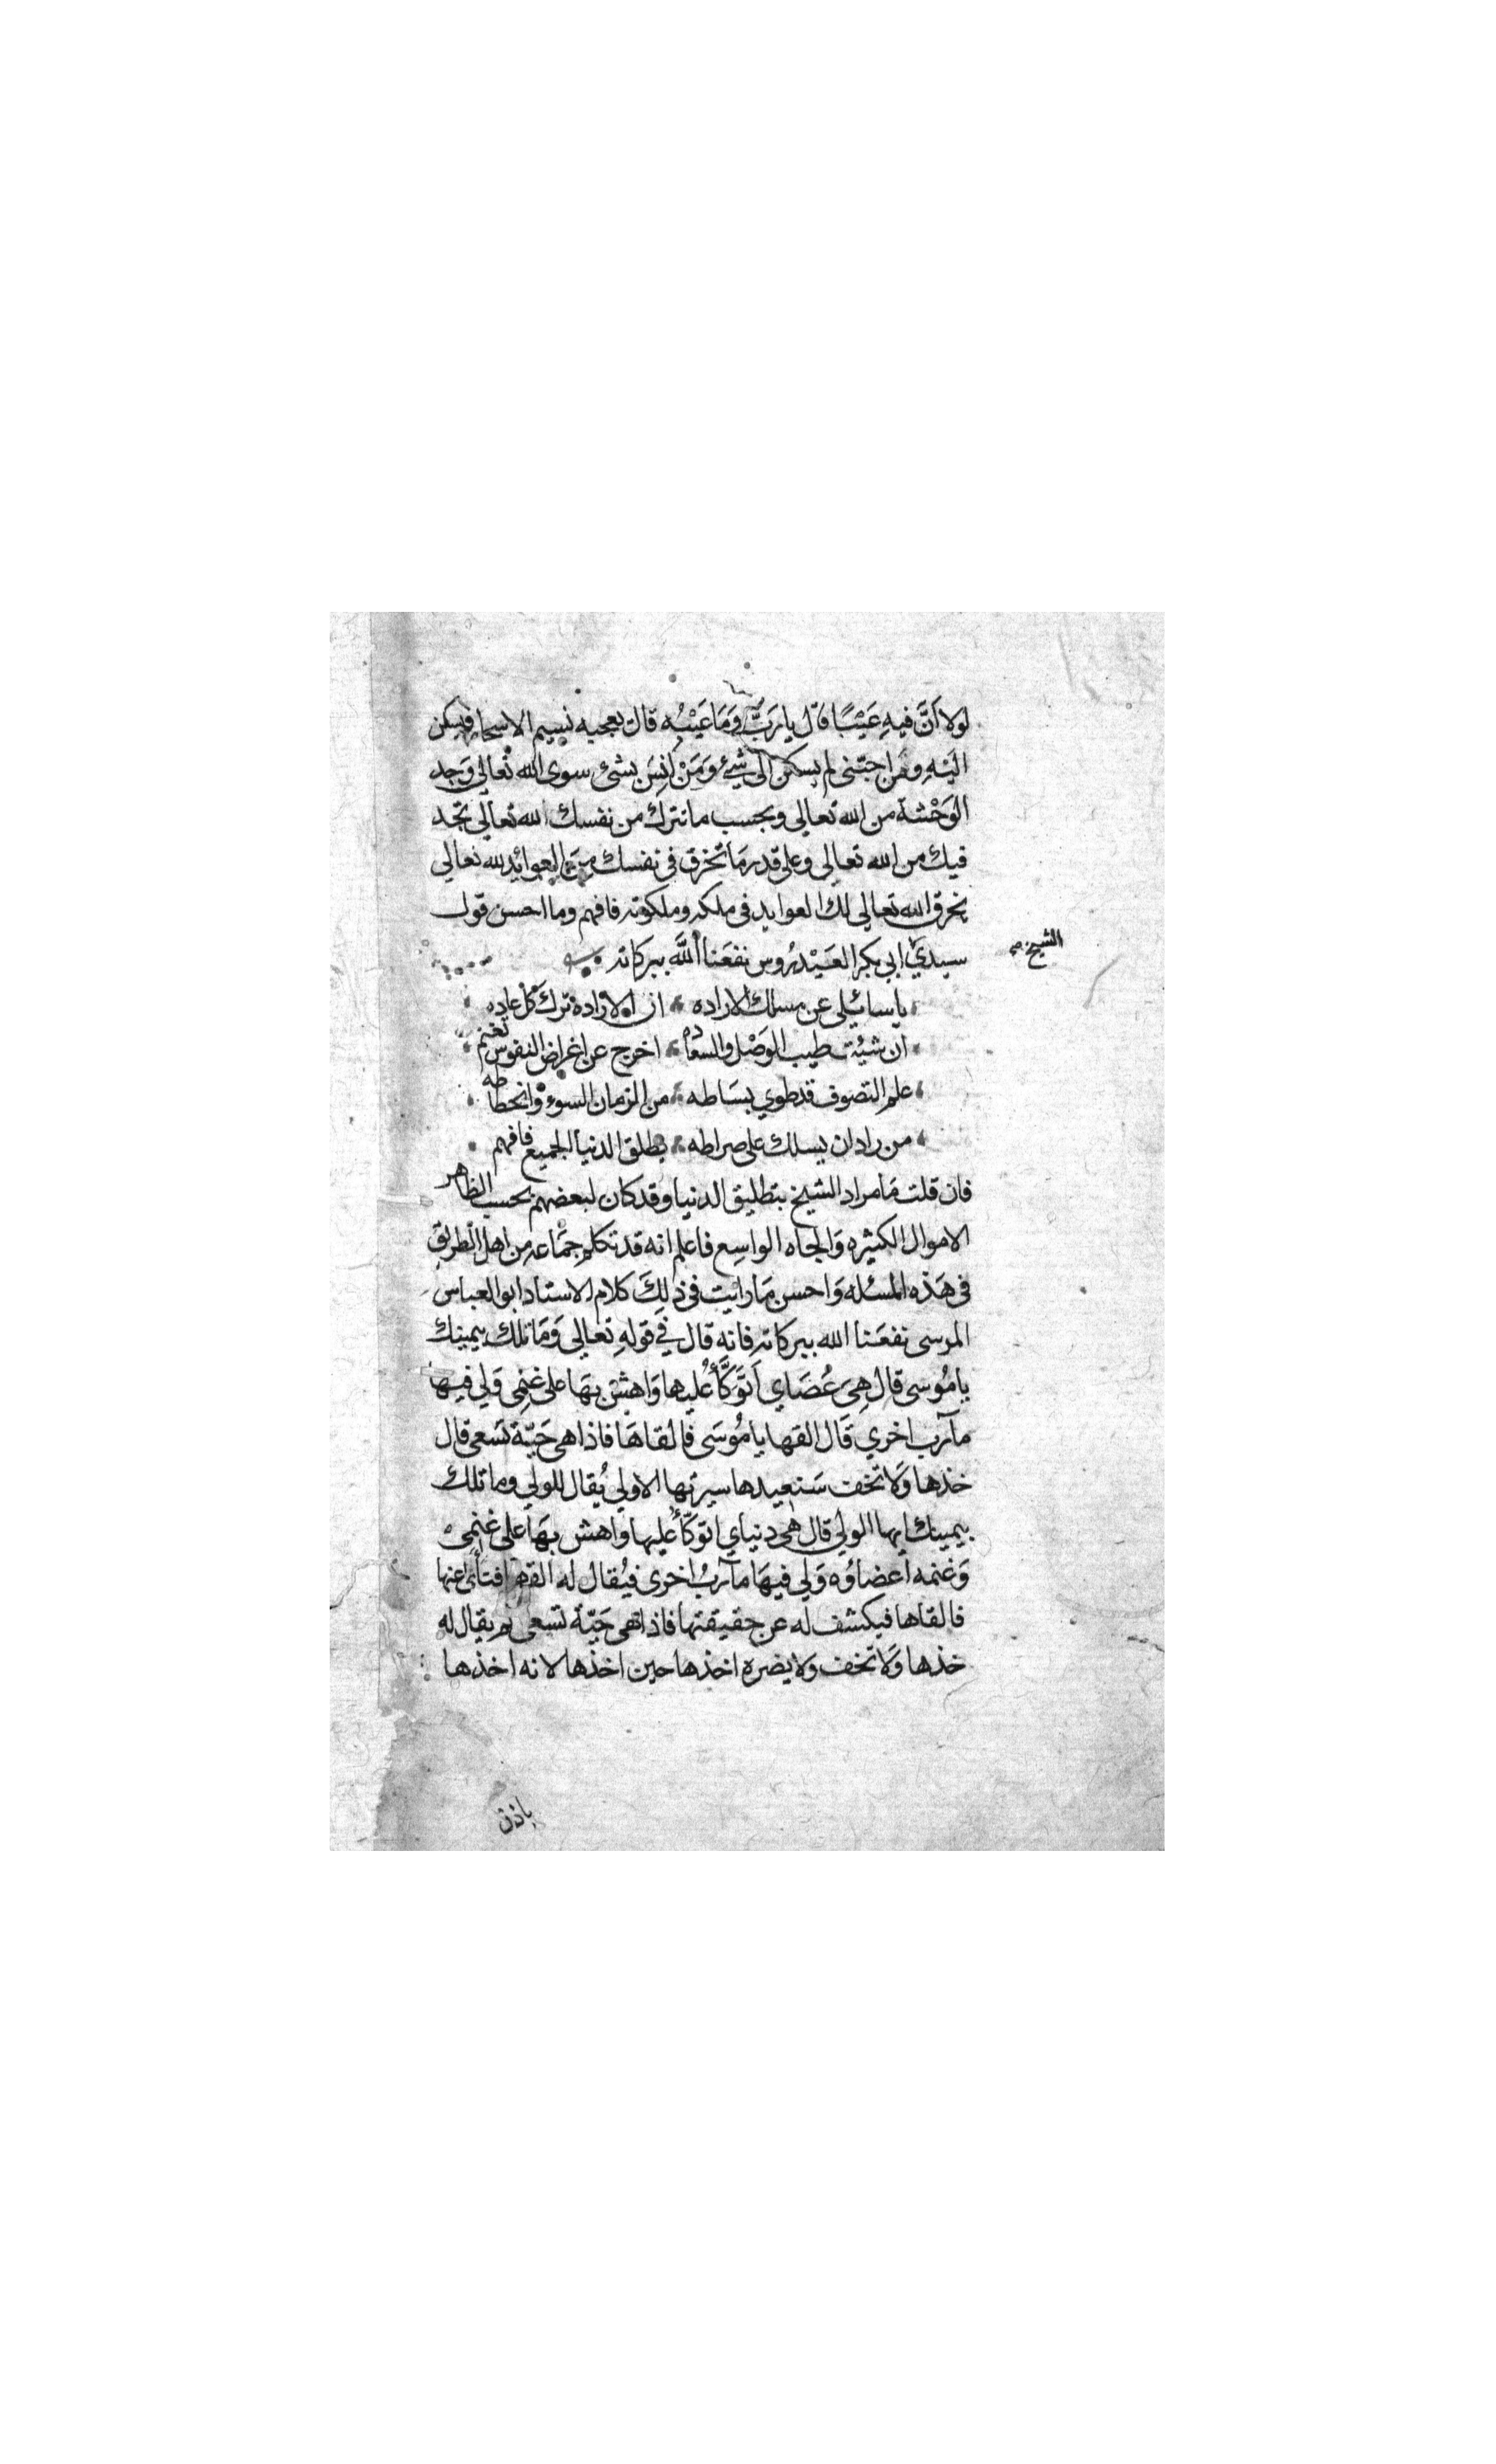 لولا أنَّ فيهِ عَيْبًا قال يا رَبِّ وَمَا عَيْبُه قال يعجبه نسيم الاسحار فيسكن
اليْهِ ومن احبّني لم يسكن الى شيْءٍ وَمَنْ انِسَ بشئ سوى الله تعالى وَجد
الوَحْشة من الله تعالى وبحسب ما تترك من نفسك الله تعالى تجد
فيك من الله تعالى وعلى قدر مَا تخرق في نفسك من العوائد لله تعالى
يخرق الله تعالى لك العوايد في ملكه وملكوته فافهم وما احسن قول
الشيخ صح
سيدي ابي بكر العَيْدَرُوس نفعَنا اللَّه ببركاته
يا سائلي عن مسلك الاراده ان الارادة ترك كل عاده
ان شئت طيب الوَصْل والسعاده اخرج عن اغراض النفوس تغنم
علم التصوف قد طوي بسَاطه من الزمان السوء وانحطاطه
من راد ان يسلك على صراطه يطلق الدنيا الجميع فافهم
فان قلت مَا مراد الشيخ بتطليق الدنيا وقد كان لبعضهم بحسب الظاهر
الاموال الكثيره وَالجاه الواسِع فاعلم انه قد تكلم جمَاعه من اهل الطريق
في هَذه المسئله وَاحسن مَا رايت في ذلِكَ كلام الاستاد ابو العباس
المرسى نفعَنا الله ببركاته فانه قال في قولهِ تعالى وَمَا تلك بيمينك
يا مُوسى قال هِيَ عَصَاي اتَوَكَّأُ عليها وَاهش بهَا على غنمِي وَلي فيها
مآرب اخري قَال القها يا مُوسَى فالقاهَا فاذا هي حَيّة تسَعى قال
خذها وَلا تخف سَنعيدها سيرتها الاولي يُقال للولي وما تلك
بيمينك ايها الولي قال هي دنياي اتوَكّأُ عليها وَاهش بهَا على غنمي
وَغنمه أعضاؤُه وَلي فيهَا مآربُ اخرى فيُقال له القها عنها
فالقاها فيكشف له عن حقيقتها فاذا هي حَيّة تسعى ثم يقال له
خذها وَلا تخف ولا يضره اخذها حين اخذها لانه اخذها
باذن